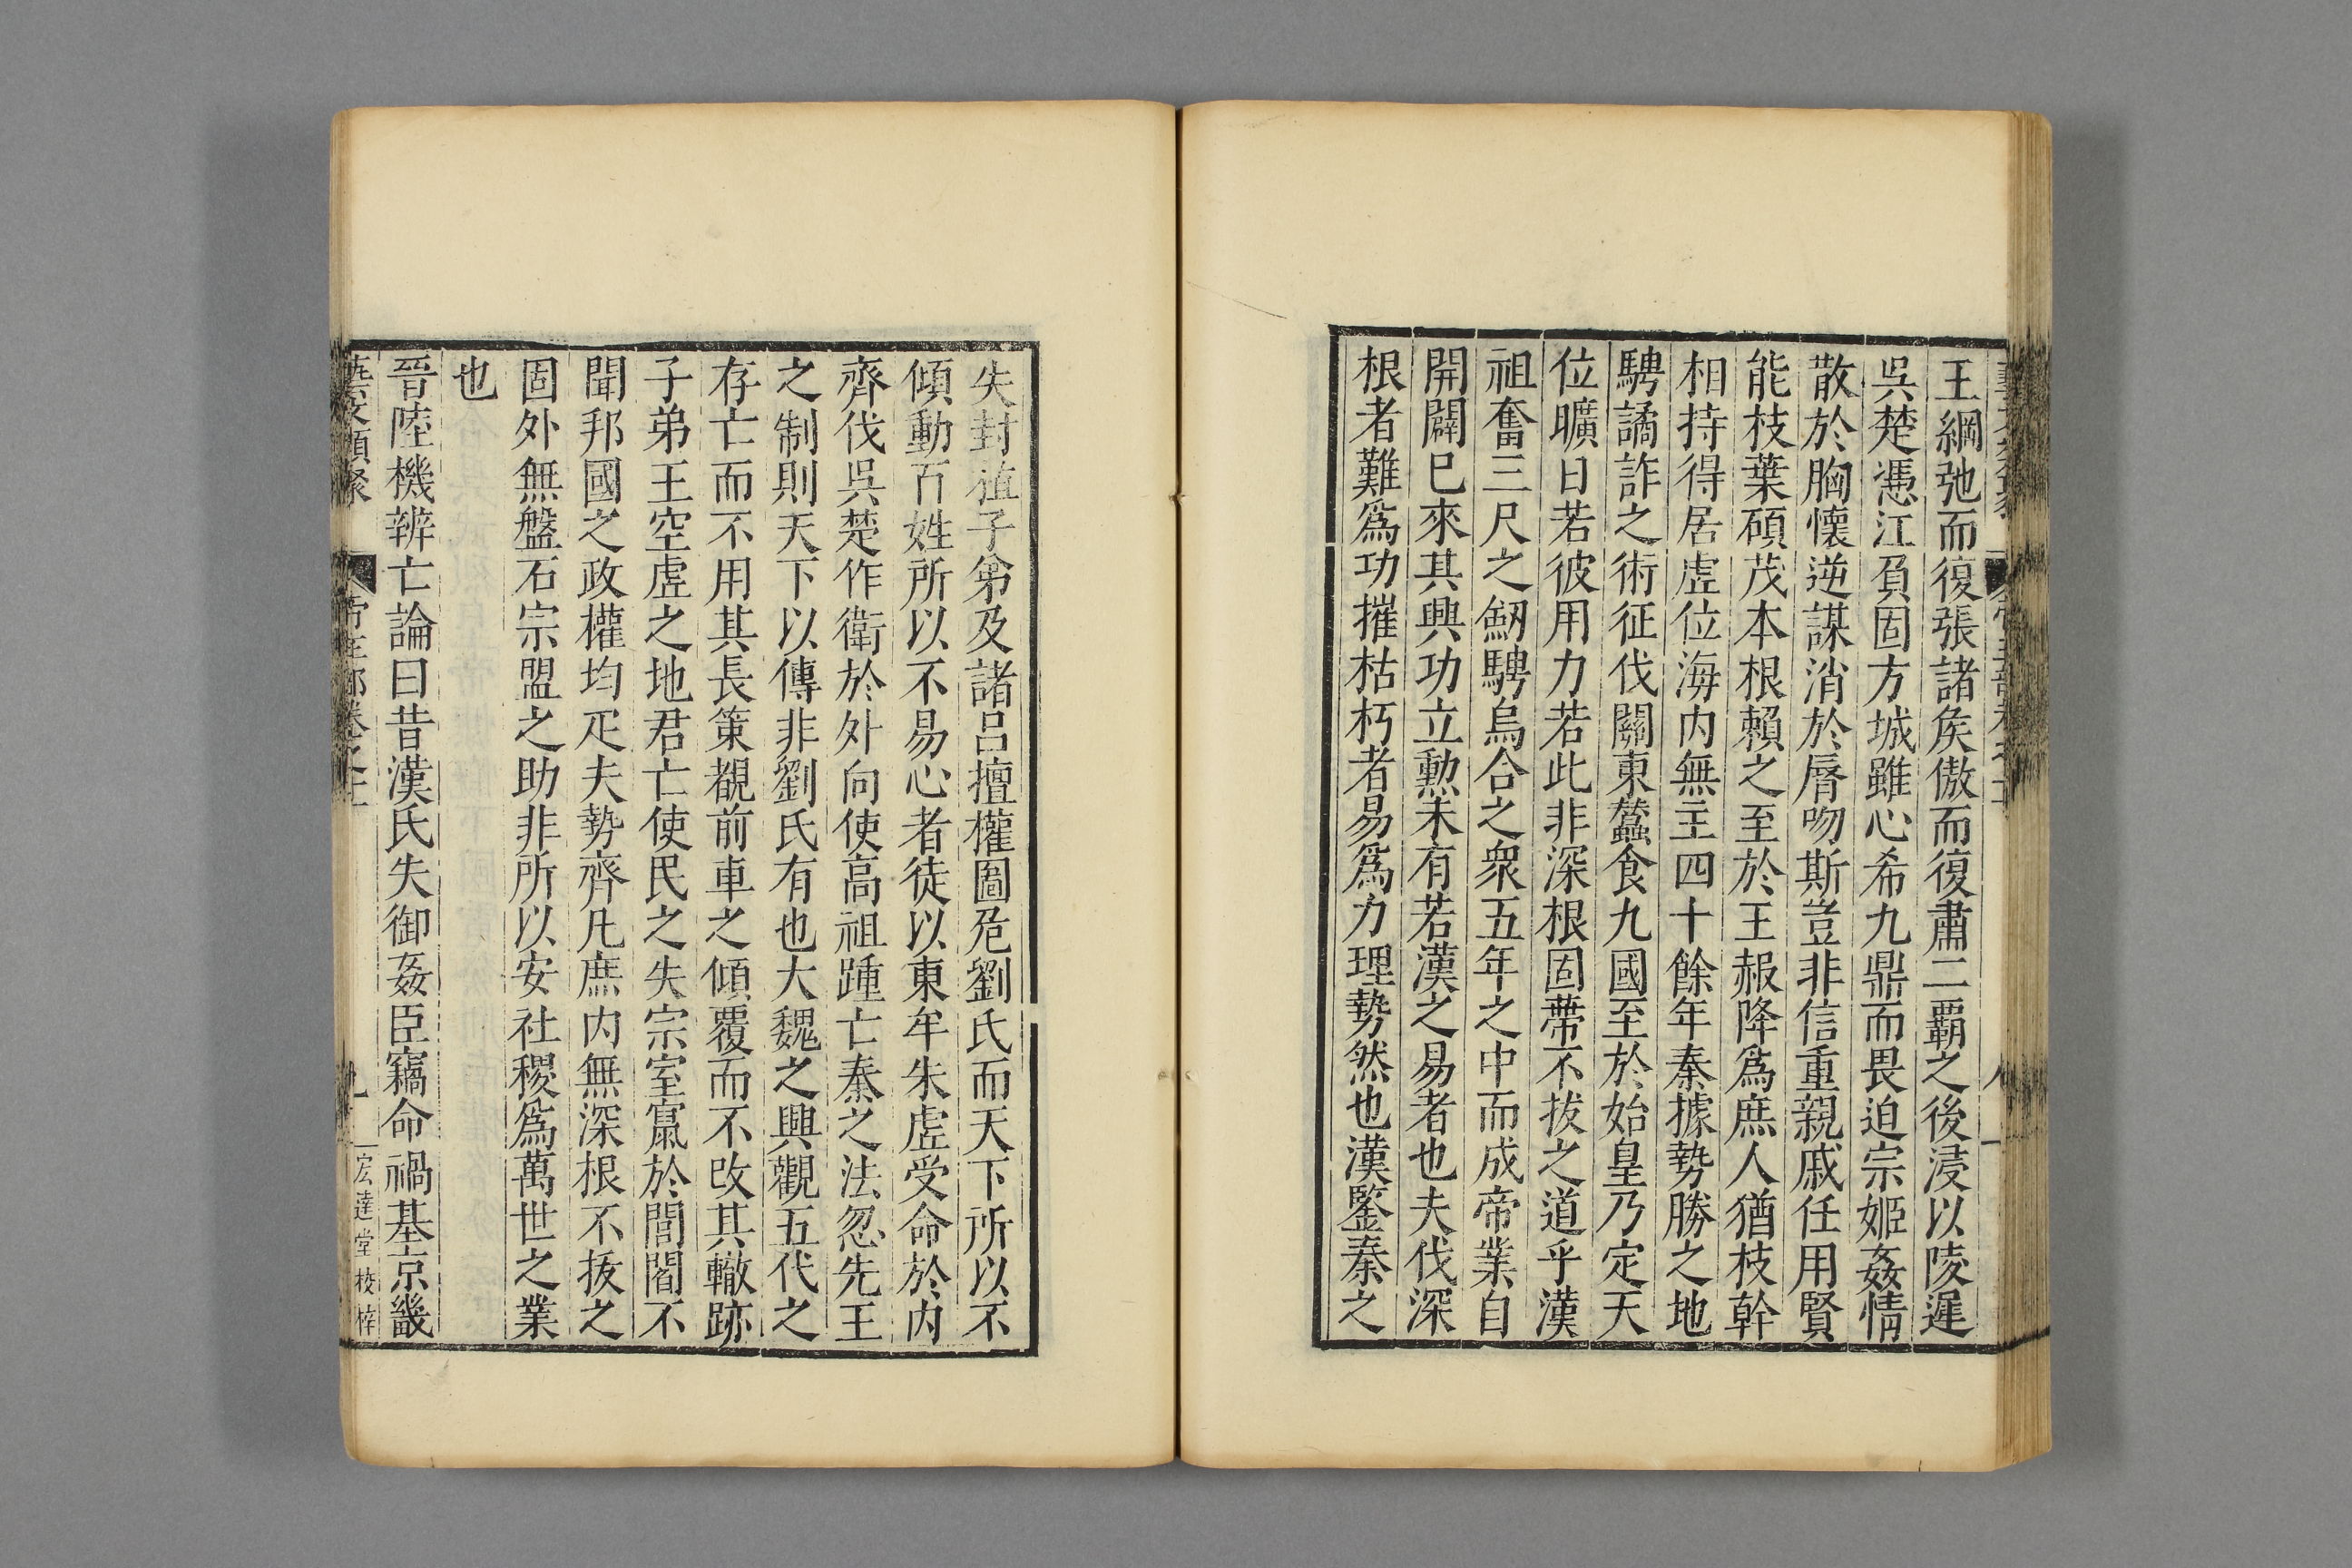 王綱弛而復張諸矦傲而復肅二霸之後浸以陵遲
吳楚憑江負固方城雖心希九鼎而畏迫宗姬姦情
散於胸懷逆謀消於脣吻斯豈非信重親戚任用賢
能枝葉碩茂本根賴之至於王赧降爲庶人猶枝幹
相持得居虛位海内無主四十餘年秦據勢勝之地
騁譎詐之術征伐關東蠶食九國至於始皇乃定天
位曠日若彼用力若此非深根固蔕不拔之道乎漢
祖奮三尺之劒騁烏合之衆五年之中而成帝業自
開闢已來其興功立勲未有若漢之易者也夫伐深
根者難爲功摧枯朽者易爲力理勢然也漢鑒秦之
失封植子弟及諸呂擅權圖危劉氏而天下所以不
傾動百姓所以不易心者徒以東牟朱虛受命於内
齊伐吳楚作衛於外向使高祖踵亡秦之法忽先王
之制則天下以傳非劉氏有也大魏之興觀五代之
存亡而不用其長策覩前車之傾覆而不改其轍跡
子弟王空虛之地君亡使民之失宗室竄於閭閻不
聞邦國之政權均疋夫勢齊凡庶内無深根不拔之
固外無盤石宗盟之助非所以安社稷爲萬世之業
也
晉陸機辨亡論曰昔漢氏失御姦臣竊命禍基京畿
藝文類聚 帝王部卷之十一 九 宏達堂校梓